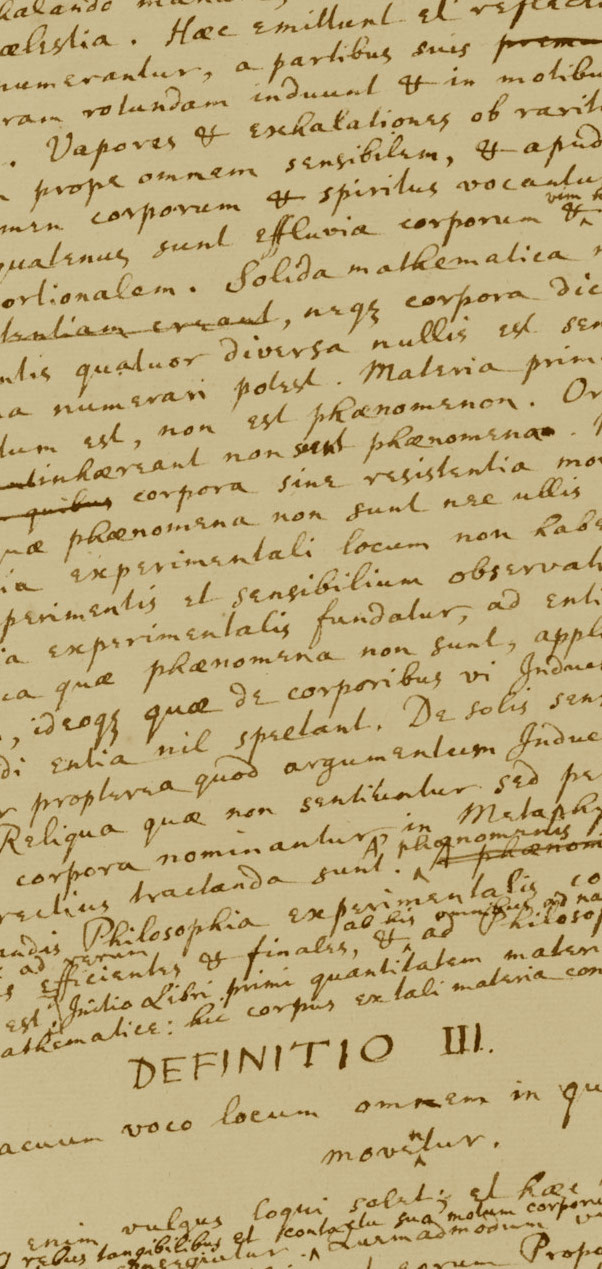 halando
ælestia. Hæc emittunt et reflect
numerantur, a partibus suis
ram rotundam induunt & in motibu
. Vapores & exhalationes ob rarit
prope omnem sensibilem, & apud
men corporum & spiritus vocantu
quatenus sunt effluvia corporum &
ortionalem. Solida mathematica
tentiam creant, neqꝫ corpora dic
ntis quatuor diversa nullis est sen
a numerari potest. Materia prim
dum est, non est phænomenon. Or
inhæreant non sunt phænomena.
quibus corpora sine resistentia mo
uæ phænomena non sunt nec ullis
ia experimentali locum non habe
perimentis et sensibilium observat
ia experimentalis fundatur, ad enti
ea quæ phænomena non sunt, appl
, ideoqꝫ quæ de corporibus vi Induc
di entia nil spectant. De solis sens
r propterea quod argumentum Induc
Reliqua quæ non sentiuntur sed per
corpora nominantur, in Metaphy
phænomenis
rectius tractanda sunt. phænom
andis Philosophia experimentalis co
ad rerum ab his omnibus ad na
s efficientes & finales, & ad Philosop
est. Initio Libri primi quantitatem materi
athematice: hic corpus ex tali materia con
DEFINITIO III.
acuum voco locum omnem in qu
n
movetur.
enim vulgus loqui solet; et hæc
rebus tangibilibus et contactu suo motum corporu
Quemadmodum
Propo